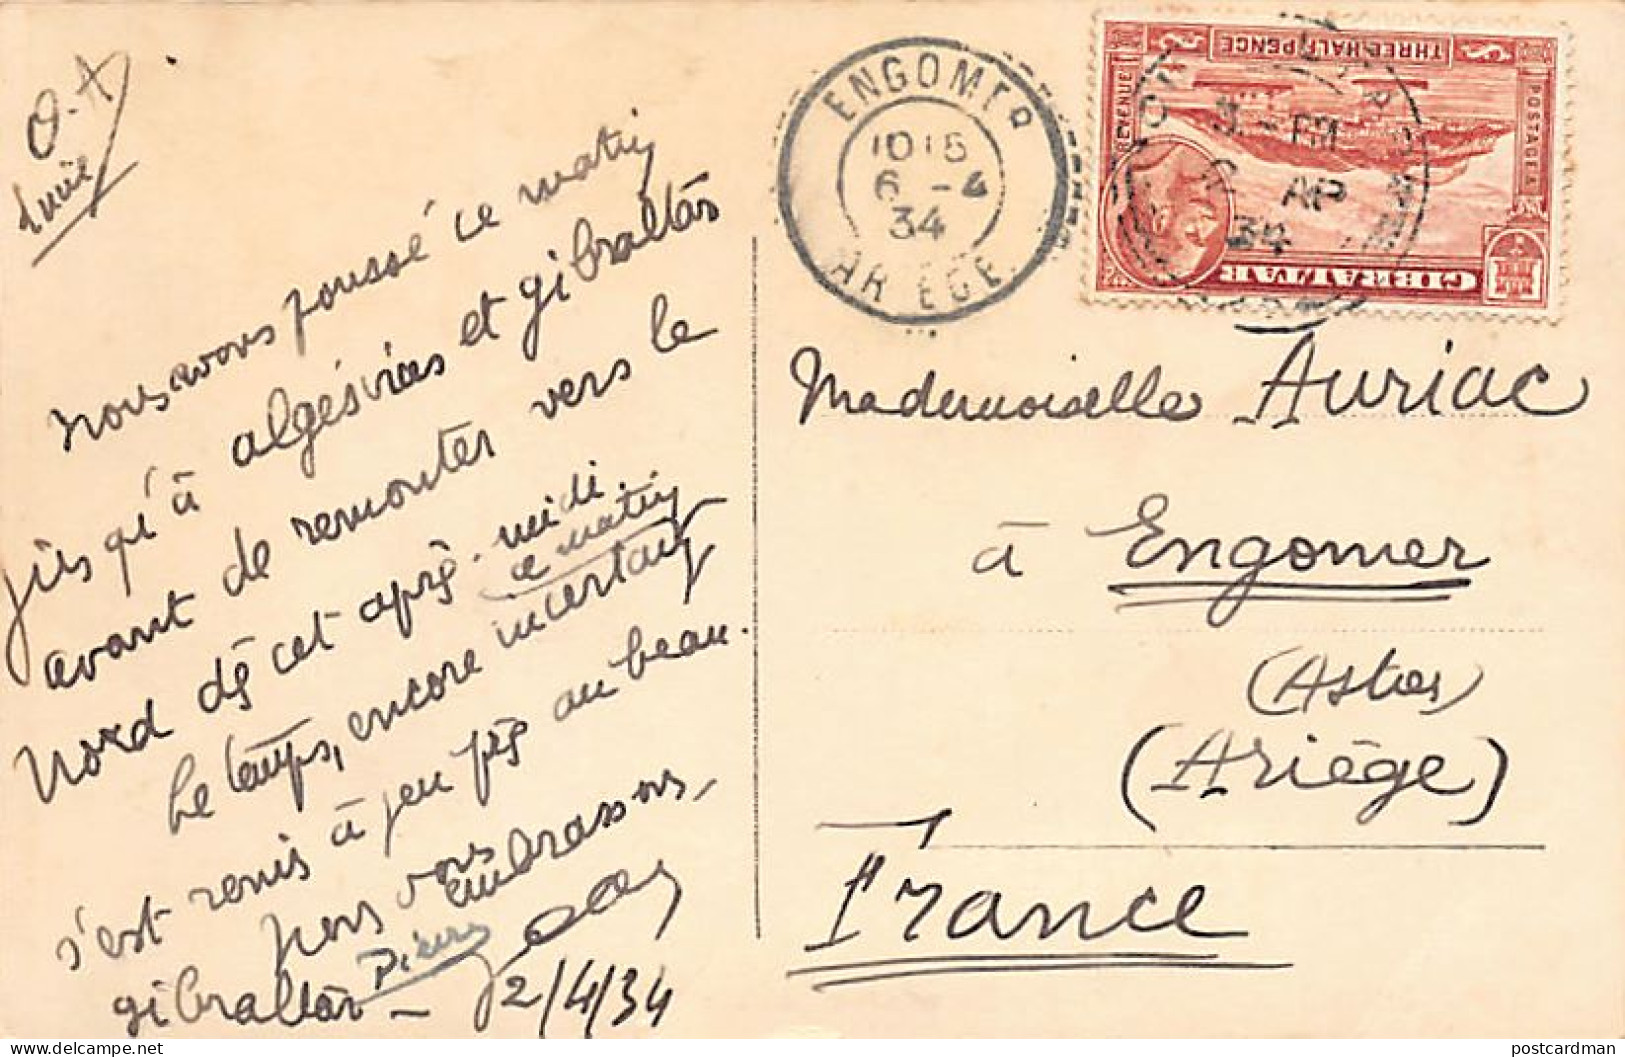 Nous avons poussé ce matin
jusqu'à algésiras et gibraltar
avant de remonter vers le
Nord dès cet après-midi.
Le temps, encore incertain
ce matin
s'est remis à peu près au beau.
Nous vous embrassons,
Pierre
gibraltar - 2/4/34
ENGOMER
10 15
6 - 4
34
ARIEGE
THREE HALF PENCE
REVENUE
POSTAGE &
GIBRALTAR
AP
34
Mademoiselle Auriac
à Engomer
(Ariège)
France
postcardman